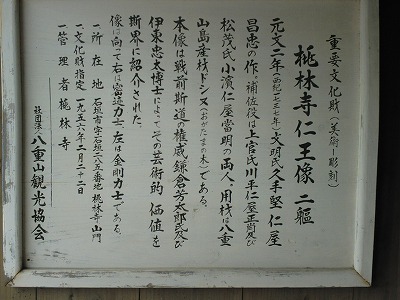 重要文化財(美術・彫刻)
桃林寺仁王像 二軀
元文二年(西紀一七三七年)文明氏久手堅仁屋
昌忠の作。補佐役は上官氏川平仁屋正 及び
松茂氏小濱仁屋當明の両人。用材は八重
山島産材ドシヌ(おがたまの木)である。
本像は戦前斯道の権威鎌倉芳太郎氏及び
伊東忠太博士によってその芸術的価値を
斯界に紹介された。
像に向って右は密迹力士、左は金剛力士である。
一、所在地 石垣市字石垣二八五番地 桃林寺山門
一、文化財指定 一九五六年二月二十二日
一、管理者 桃林寺
社団法人 八重山観光協会